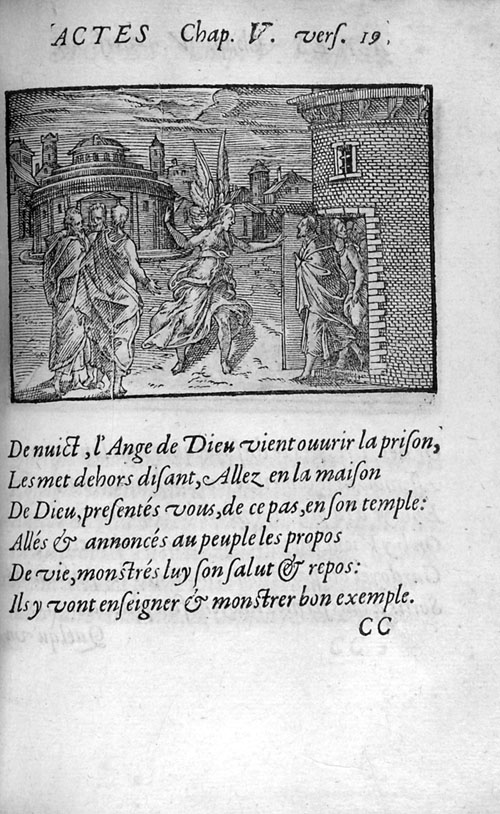 ACTES Chap. V. verſ. 19.
De nuict, l'Ange de Dieu vient ouurir la priſon,
Les met dehors diſant, Allez en la maiſon
De Dieu, preſentés vous, de ce pas, en ſon temple:
Allés & annoncés au peuple les propos
De vie, monſtrés luy ſon ſalut & repos:
Ils y vont enſeigner & monſtrer bon exemple.
CC